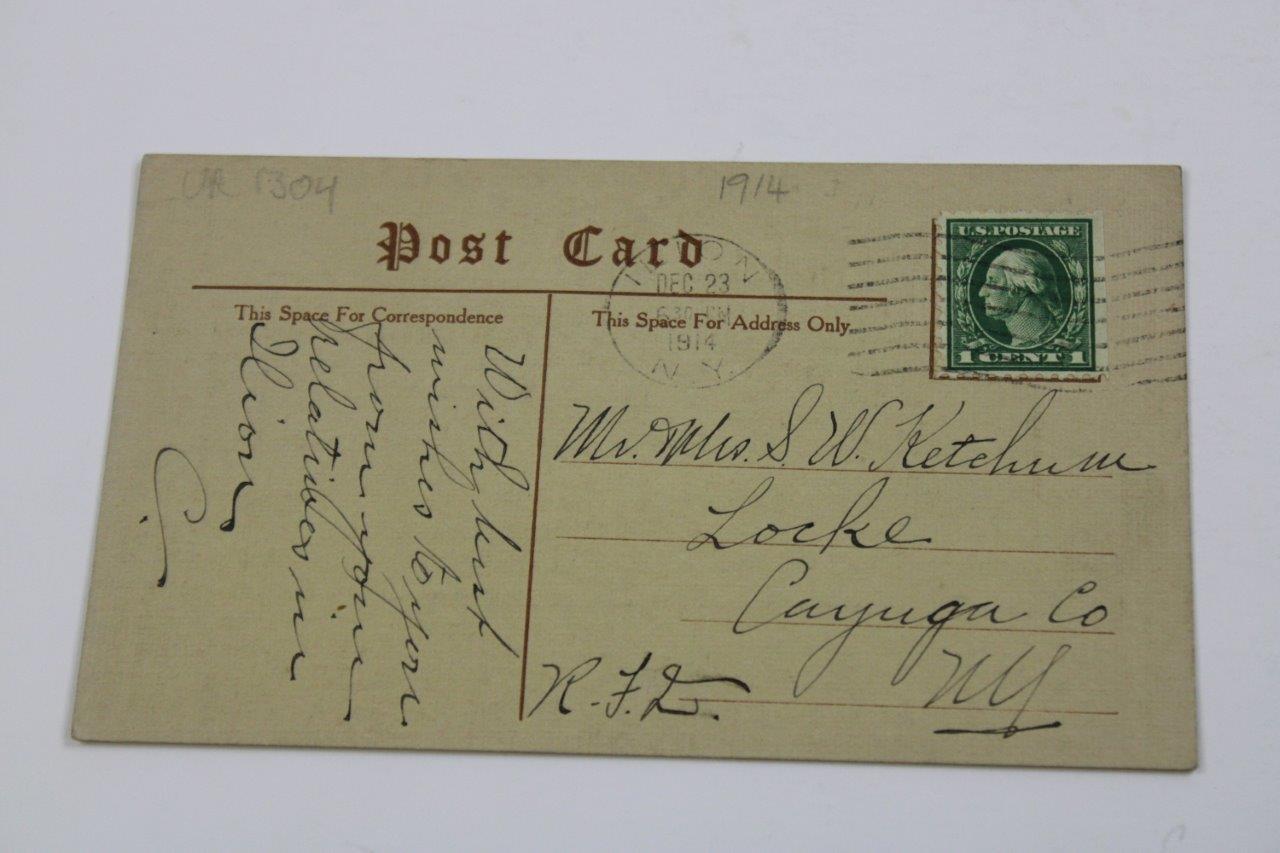 UR 1304
1914
Post Card
This Space For Correspondence
This Space For Address Only.
ILION
DEC 23
630 PM
1914
N.Y.
U.S.POSTAGE
1 CENT 1
With best
wishes to you
from your
relatives in
Ilion
C.
Mr. Mrs. S. W. Ketchum
Locke
Cayuga Co
NY
R.F.D.